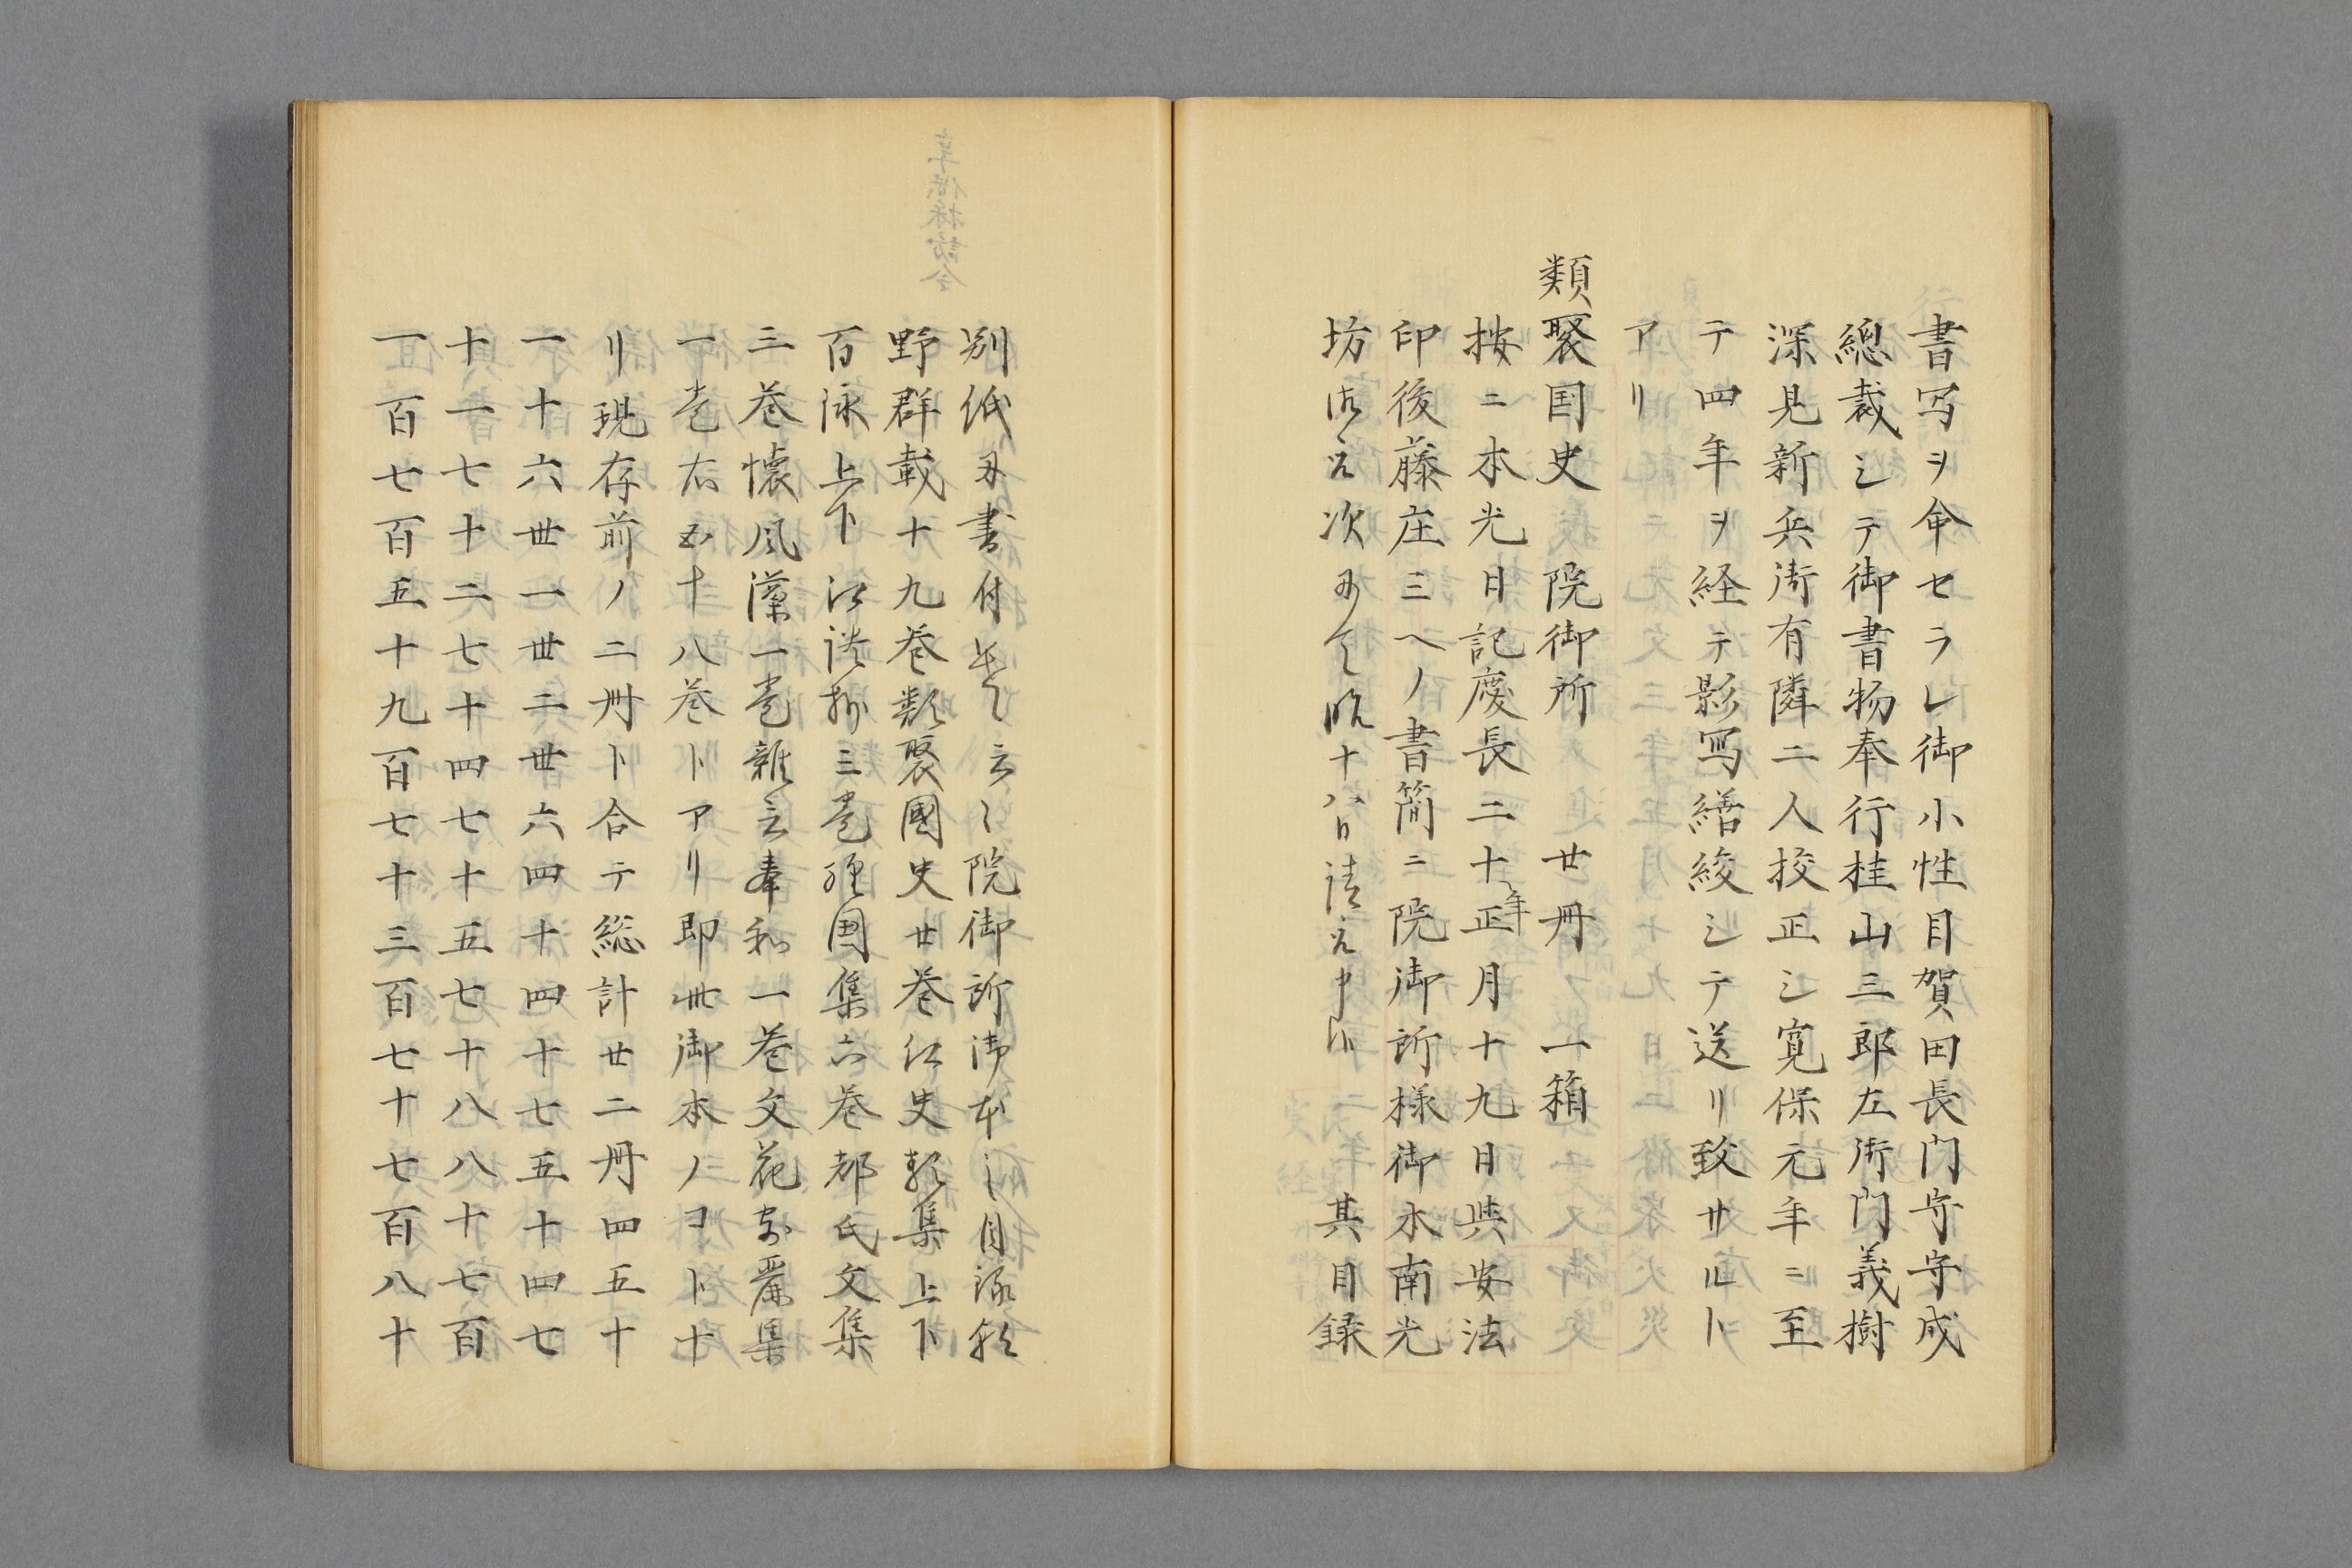 書写ヲ命セラレ御小性目賀田長门守守成
總裁シテ御書物奉行桂山三郎左衛门義樹
深見新兵衛有隣二人挍正シ寛保元年ニ至
テ四年ヲ経テ影写繕綴シテ送リ致サルト
アリ
類聚国史 院御所 廿冊 一箱
按ニ本光日記慶長二十年正月十九日與安法
印後藤庄三ヘノ書簡ニ院御所様御本南光
坊 次 十八日 其目録
別紙 書付 云々院御所御本之目録朝
野群載十九巻類聚國史廿巻江史類集上下
百詠上下江談抄三巻經国集六巻都氏文集
三巻懐風藻一巻雜言奉和一巻文花秀麗集
一巻右五十八巻トアリ即此御本ノコト十
リ現存前ノ二冊ト合テ総計廿二冊四五十
一十六丗一丗二丗六四十四十七五十四七
十一七十二七十四七十五七十八八十七百
一百七百五十九百七十三百七十七百八十